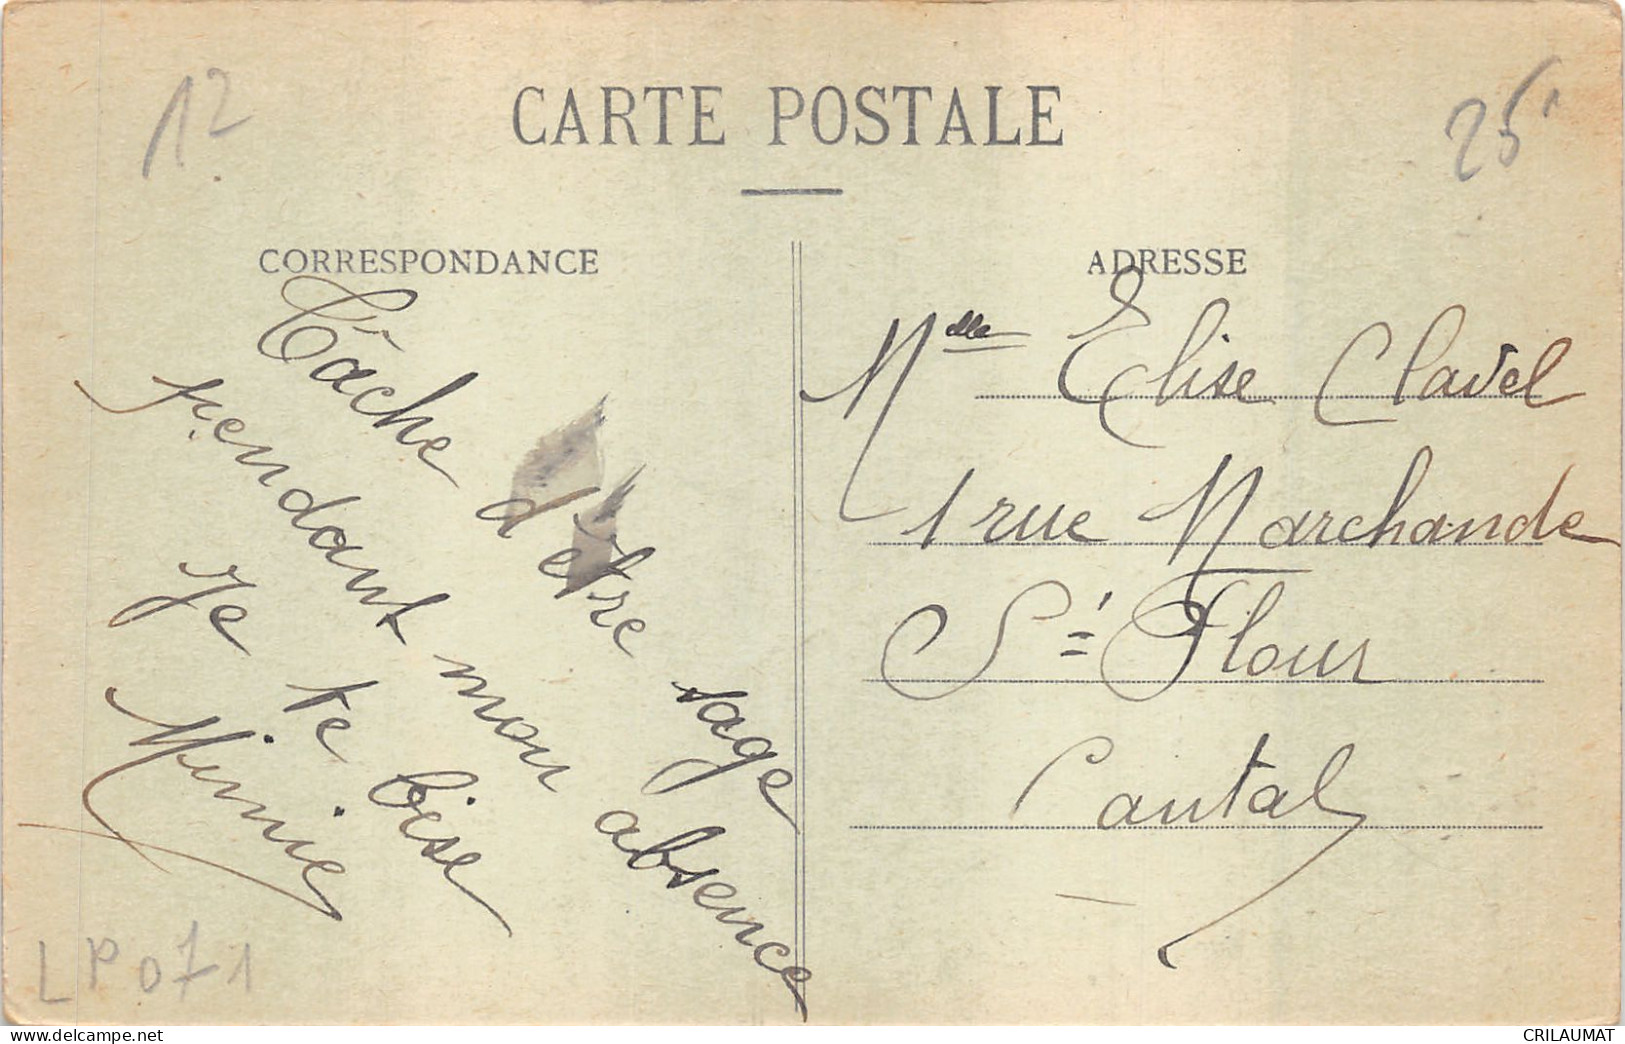 12
CARTE POSTALE
25
CORRESPONDANCE
Tâche d'être sage
pendant mon absence
Je te bise
Mimie
ADRESSE
Mlle Elise Clavel
1 rue Marchande
St Flour
Cantal
LP071
www.delcampe.net
CRILAUMAT